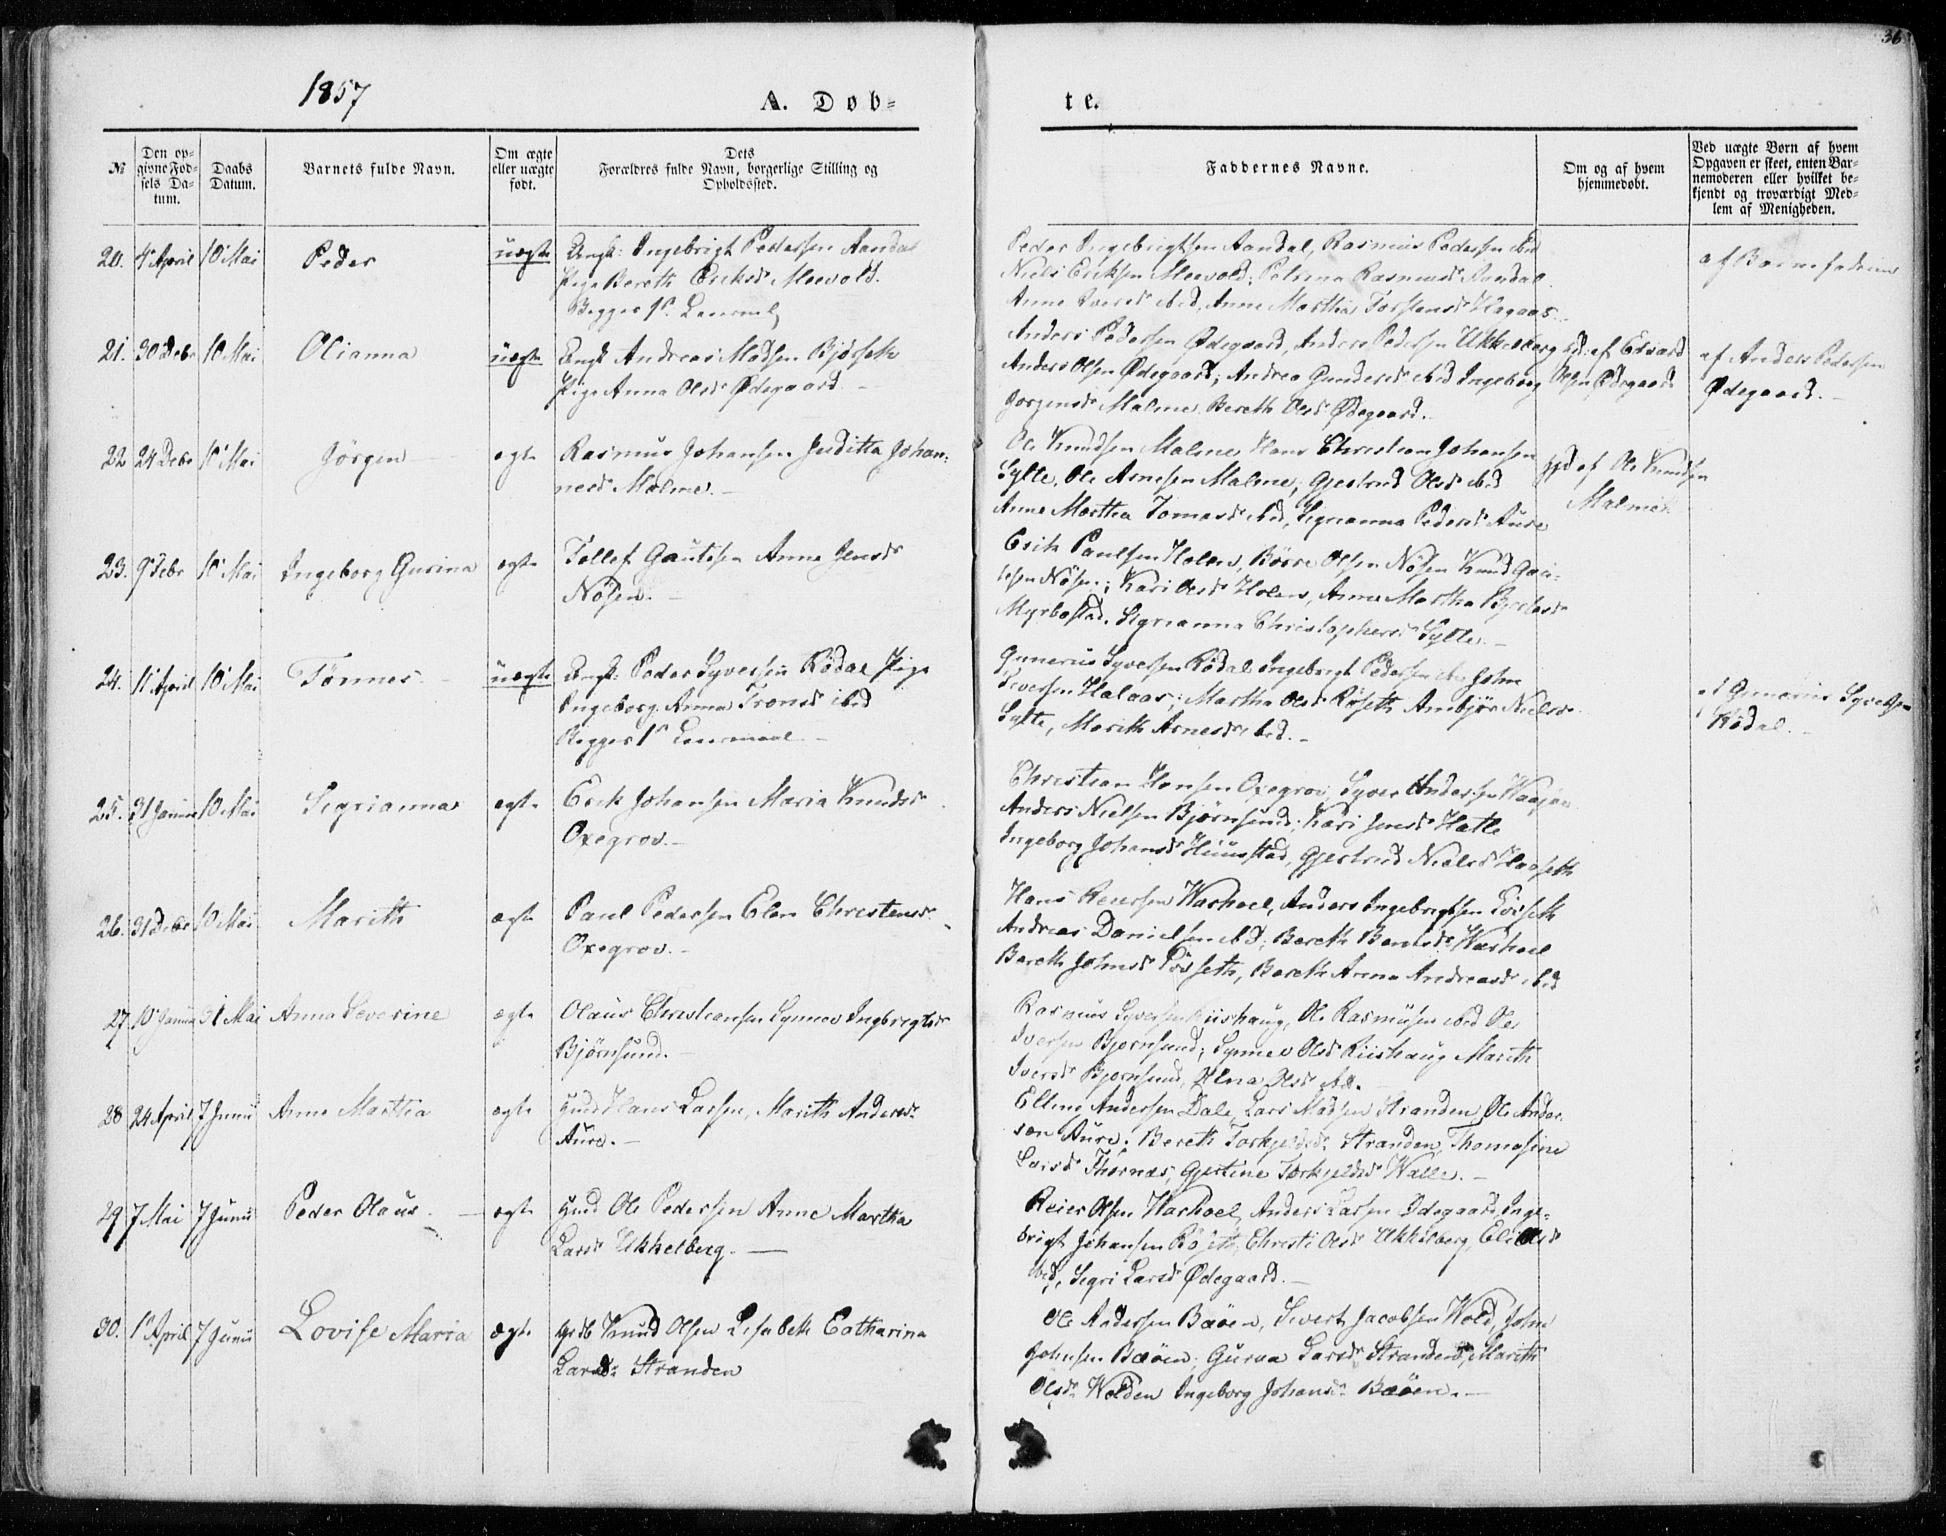 36
1857
A. Døb-
te.
№
Den op-
givne Fød-
sels Da-
tum.
Daabs
Datum.
Barnets fulde Navn.
Om ægte
eller uægte
født.
Dets
Forældres fulde Navn, borgerlige Stilling og
Opholdssted.
Faddernes Navne.
Om og af hvem
hjemmedøbt.
Ved uægte Børn af hvem
Opgaven er skeet, enten Bar-
nemoderen eller hvilket be-
kjendt og troværdigt Med-
lem af Menigheden.
20. 4 April 10 Mai Peder uægte Ungk: Ingebrigt Pedersen Aandal
Pige Bereth Eriksd. Meevold.
Begges 1ste Leiermaal
Peder Ingebrigtsen Aandal, Rasmus Pedersen ibid
Niels Eriksen Meevold; Rasmusd. Aandal
Anne ibid, Anne Marthia Torstensd. Hagaas
af Barnefaderen
21. 30 Debr 10 Mai Olianna uægte Ungk Andreas Madsen Bjørseth
Pige Anna Olsd. Ødegaard
Anders Pedersen Ødegaard, Anders Pedersen Ukkelberg
Anders Olsen Ødegaard; Andrea Gundersd. ibid Ingeborg
Jørgensd. Malme, Bereth Olsd. Ødegaard.
af Edvard
Olsen Ødegaard
af Anders Pedersen
Ødegaard.
22 24 Debr 10 Mai Jørgen ægte Rasmus Johansen Juditha Johan-
nesd. Malme.
Ole Knudsen Malme Hans Christian Johansen
Sylte, Ole Arnesen Malme; Gjertrud Olsd. ibid
Anne Marthea Tomasd. ibid, Sigrianna Pedersd. Aure
hjd af Ole Knudsen
Malme
23. 9 Febr 10 Mai Ingeborg Gurina ægte Tollef Gautesen Anne Jensd.
Nøsen.
Erik Paulsen Holen, Børre Olsen Nøsen Knud Gau-
tesen Nøsen; Kari Olsd. Holen, Anne Martha
Myrbostad, Sigrianna Christophersd. Sylte.
24. 11 April 10 Mai Tønnes uægte Ungk: Peder Syversen Rødal Pige
Ingeborg Anna Tronsd. ibid
Begges 1ste Leiermaal
Gunerius Syversen Rødal Ingebrigt Pedersen ibid John
Iversen Halaas; Martha Olsd. Røseth Ambjør Nielsd.
Sylte, Marith Arnesd. ibid.
af Gunerius Syversen
Rødal.
25. 31 Januar 10 Mai Sigrianna ægte Erik Johansen Maria Knudsd.
Oxegrov.
Christian Hansen Oxegrov, Syver Andersen
Anders Nielsen Bjørnsund; Kari Jensd. Hatle
Ingeborg Johansd. Huustad, Gjertrud Nielsd.
26. 31 Debr 10 Mai Marith ægte Paul Pedersen Elen Christensd.
Oxegrov.
Hans Reiersen Warhoel, Anders Ingebrigtsen
Andreas Danielsen ibid; Bereth Warhoel
Bereth Johnsd., Bereth Anna Andreasd. ibid
27 10 Januar 31 Mai Anna Severine ægte Olaus Christiansen Synnev Ingebrigtsd.
Bjørnsund.
Rasmus Syversen Riishaug, Ole Rasmusen ibid Ole
Iversen Bjørnsund; Synnev Olsd. Riishaug Marith
Iversd. Bjørnsund, Olina Olsd. ibid.
28 24 April 7 Junii Anne Marthia ægte Hans Larsen, Marith Andersd.
Aure.
Elling Andersen Dale, Lars Madsen Stranden, Ole Ander-
sen Aure; Bereth Torkjelsd. Stranden, Thomasine
Larsd. Thornæs, Gjertine Torkjeldsd. Walle.
29 7 Mai 7 Junii Peder Olaus. ægte Ole Pedersen Anne Martha
Larsd. Ukkelberg.
Reier Olsen Warhoel, Anders Larsen Ødegaard, Inge-
brigt Johansen Røseth; Christi Olsd. Ukkelberg, Eli Olsd.
ibid, Sigri Larsd. Ødegaard.
30. 1 April 7 Junii Lovise Maria ægte Knud Olsen Lisabeth Catharina
Larsd. Stranden
Ole Andersen Bæøen, Sivert Jacobsen Wold, John
Johnsen Bæøen; Gurua Larsd. Stranden, Marith
Olsd. Wolden Ingeborg Johansd. Bæøen.